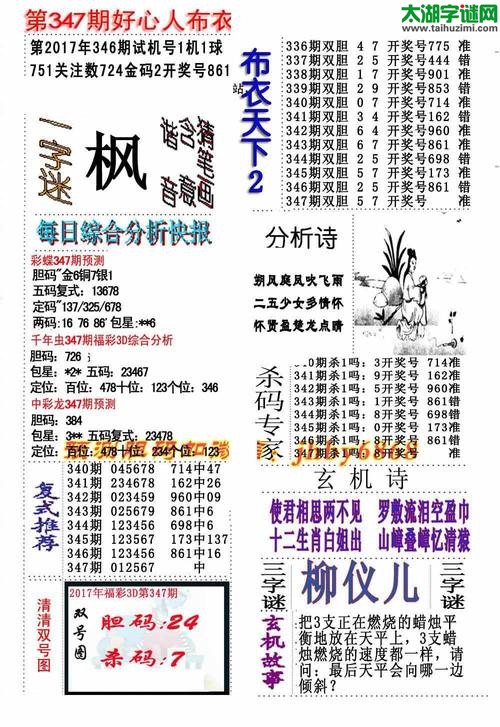 第347期好心人布衣
太湖字谜网
www.taihuzimi.com
第2017年346期试机号1机1球
751关注数724金码2开奖号861
站
一字迷
枫
猜笔画
含意
谐音
每日综合分析快报
彩蝶347期预测
胆码"金6铜7银1
五码复式：13678
定码"137/325/678
两码：16 76 86' 包星：**6
千年虫347期福彩3D综合分析
胆码：726
包星：*2* 五码：23467
定位：百位：478十位：123个位：346
中彩龙347期预测
胆码：384
包星：3** 五码：23478
定位：百位：478十位：234个位：123
复式推荐
340期 045678 714中47
341期 234678 162中26
342期 023459 960中09
343期 025679
344期 123456 698中6
345期 123567 173中137
346期 123456 861中16
347期 012567 中
清清双号图
2017年福彩3D第347期
双号图
胆码：24
杀码：7
布衣天下2
336期双胆 4 7 开奖号775 准
337期双胆 2 5 开奖号444 错
338期双胆 1 7 开奖号901 准
339期双胆 2 9 开奖号853 错
340期双胆 0 7 开奖号714 准
341期双胆 3 4 开奖号162 错
342期双胆 6 4 开奖号960 准
343期双胆 0 7 开奖号
344期双胆 2 5 开奖号698 错
345期双胆 5 7 开奖号173 准
346期双胆 2 6 开奖号861 准
347期双胆 2 5 开奖号 错
分析诗
朔风庭凤吹飞雨
二五少女多情怀
怀贤盈楚龙点睛
杀码专家
0期杀1吗：3开奖号 714准
341期杀1吗：9开奖号 162准
342期杀1吗：
344期杀1吗：8开奖号 698错
345期杀1吗：0开奖号 173准
346期杀1吗：8开奖号 861错
347期杀1吗：8开奖号
玄机诗
使君相思两不见 罗敷流泪空盈巾
十二生肖白姐出 山嶂叠嶂忆清猿
三字谜
柳仪儿
三字谜
玄机故事
把3支正在燃烧的蜡烛平
衡地放在天平上，3支蜡
烛燃烧的速度都一样，请
问：最后天平会向哪一边
倾斜？